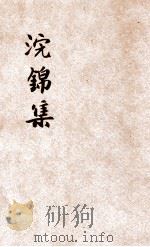 浣錦集
mtoou.info